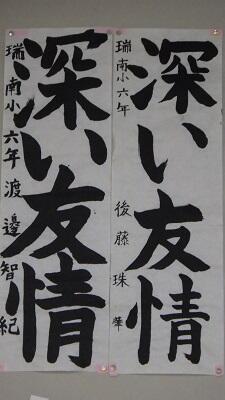 深い友情
瑞南小六年 後藤珠華
深い友情
瑞南小六年 渡邊智紀